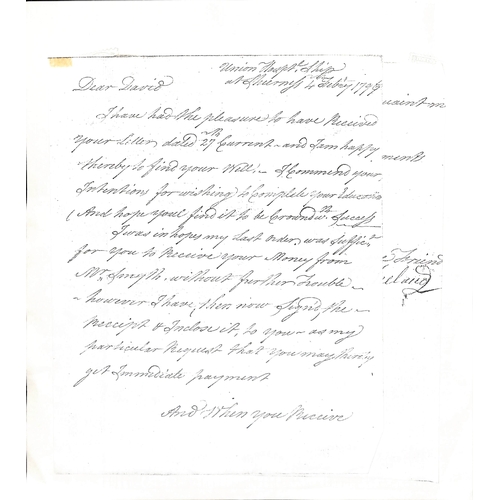 Union Hospt.l Ship
at Sheerness 4th Febry 179
Dear David
I have had the pleasure to have Received
your Letter dated 27th Current - and I am happy
thereby to find your Well: - I Commend your
Intention for wishing to Complete your Education
And hope youl find it to be Crownd wth Sucess
I was in hopes my last order, was Suffict.
for you to Receive your Money from
Mr. Smyth, without further Trouble -
however I have, then now Signd, the
Receipt & Inclose it, to you - as my
particular Request that you may
get Immidiate payment
And When you Receive
uaint m
ments
Friend